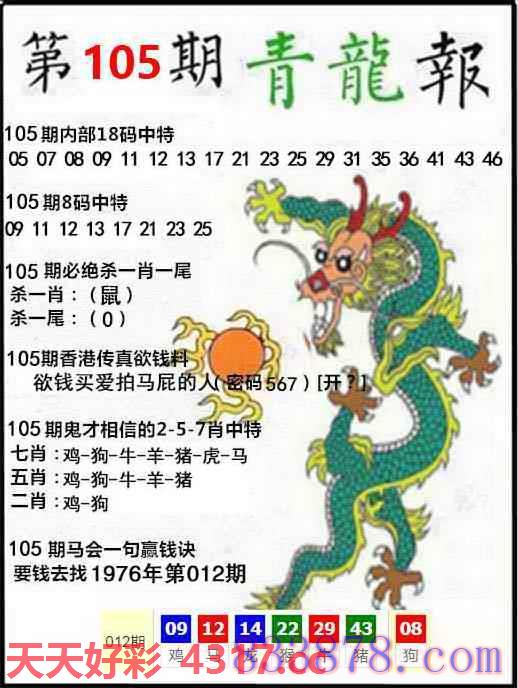 第105期青龍報
105期内部18码中特
05 07 08 09 11 12 13 17 21 23 25 29 31 35 36 41 43 46
105期8码中特
09 11 12 13 17 21 23 25
105期必绝杀一肖一尾
杀一肖：(鼠)
杀一尾：(0)
105期香港传真欲钱料
欲钱买爱拍马屁的人(密码567)[开?]
105期鬼才相信的2-5-7肖中特
七肖：鸡-狗-牛-羊-猪-虎-马
五肖：鸡-狗-牛-羊-猪
二肖：鸡-狗
105期马会一句赢钱诀
要钱去找1976年第012期
012期 09 12 14 22 29 43 08
鸡 马 龙 猴 牛 猪 狗
天天好彩 4317.cc
838878.com